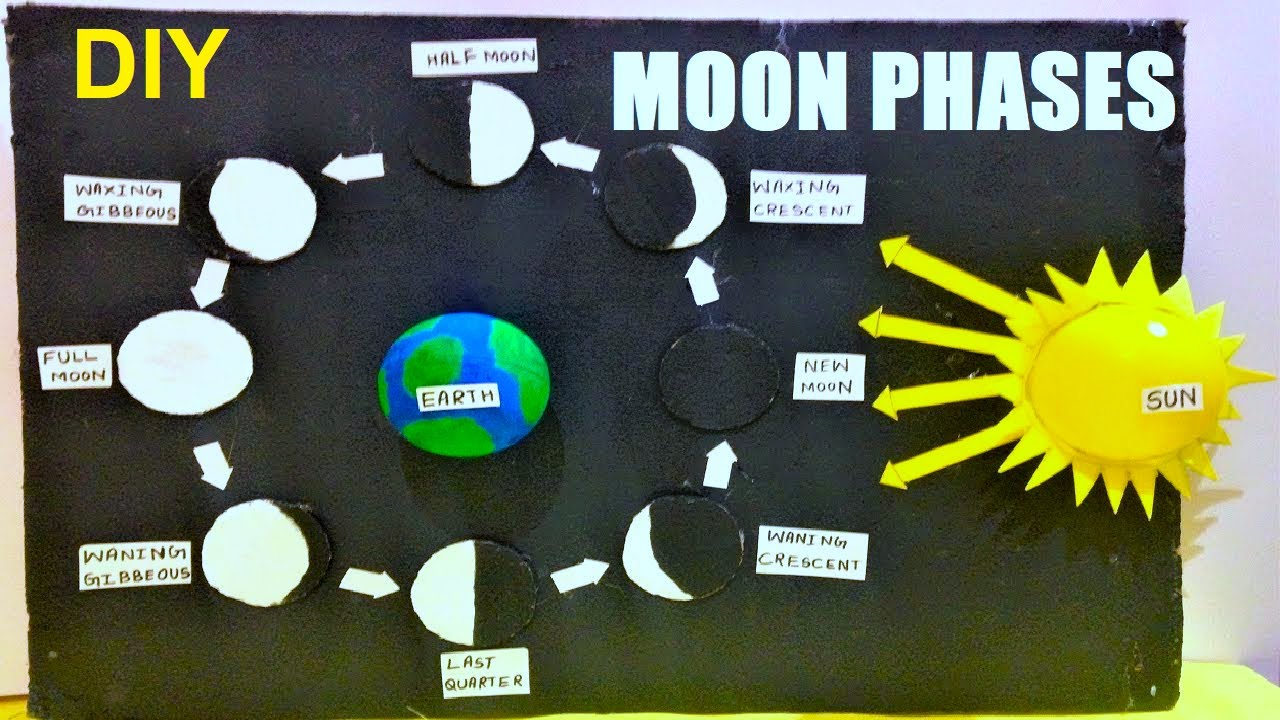 DIY
MOON PHASES
HALF MOON
WAXING
GIBBEOUS
WAXING
CRESCENT
FULL
MOON
EARTH
NEW
MOON
SUN
WANING
GIBBEOUS
WANING
CRESCENT
LAST
QUARTER